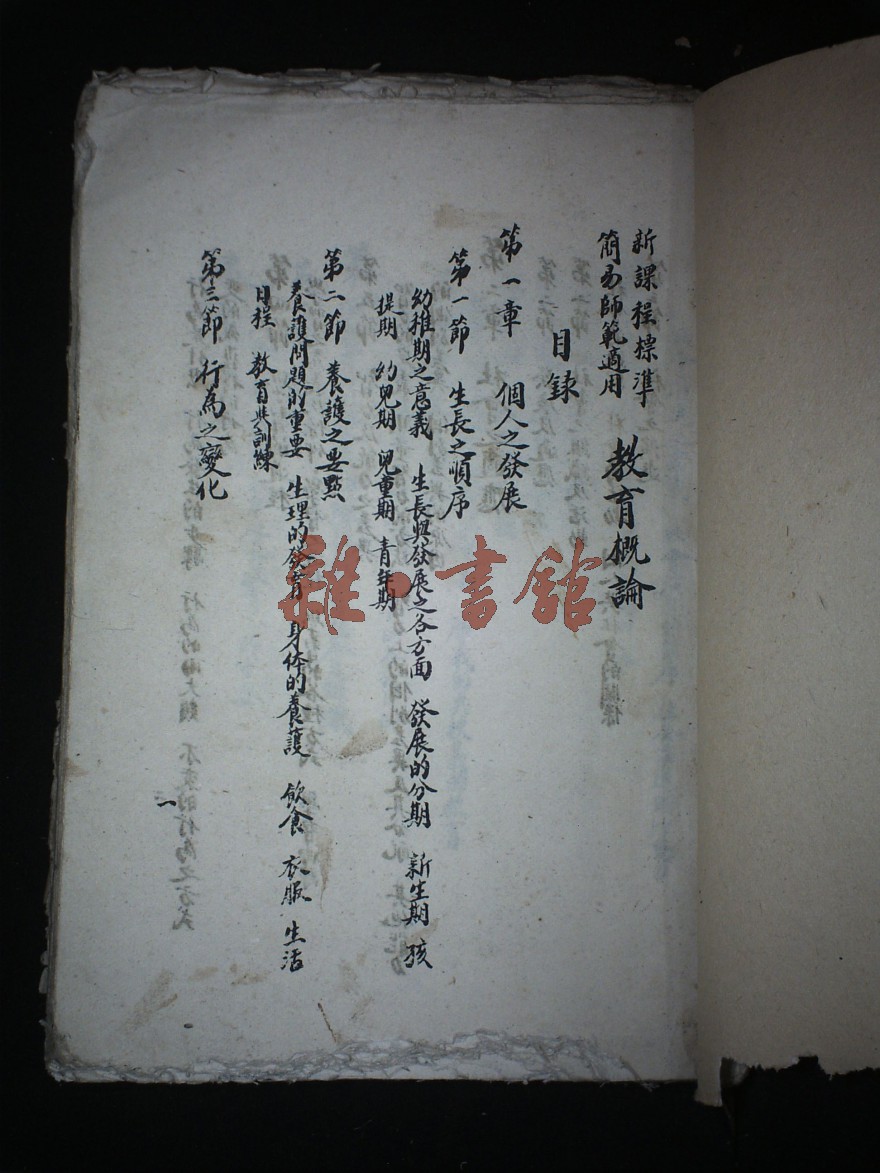 新課程標準
簡易師範適用
教育概論
目錄
第一章 個人之發展
第一節 生長之順序
幼稚期之意義 生長與發展之各方面 發展的分期 新生期 孩
提期 幼兒期 兒童期 青年期
第二節 養護之要點
養護問題的重要 生理的發育 身体的養護 飲食 衣服 生活
日程 教育與訓練
第三節 行為之變化
一
雜·書館